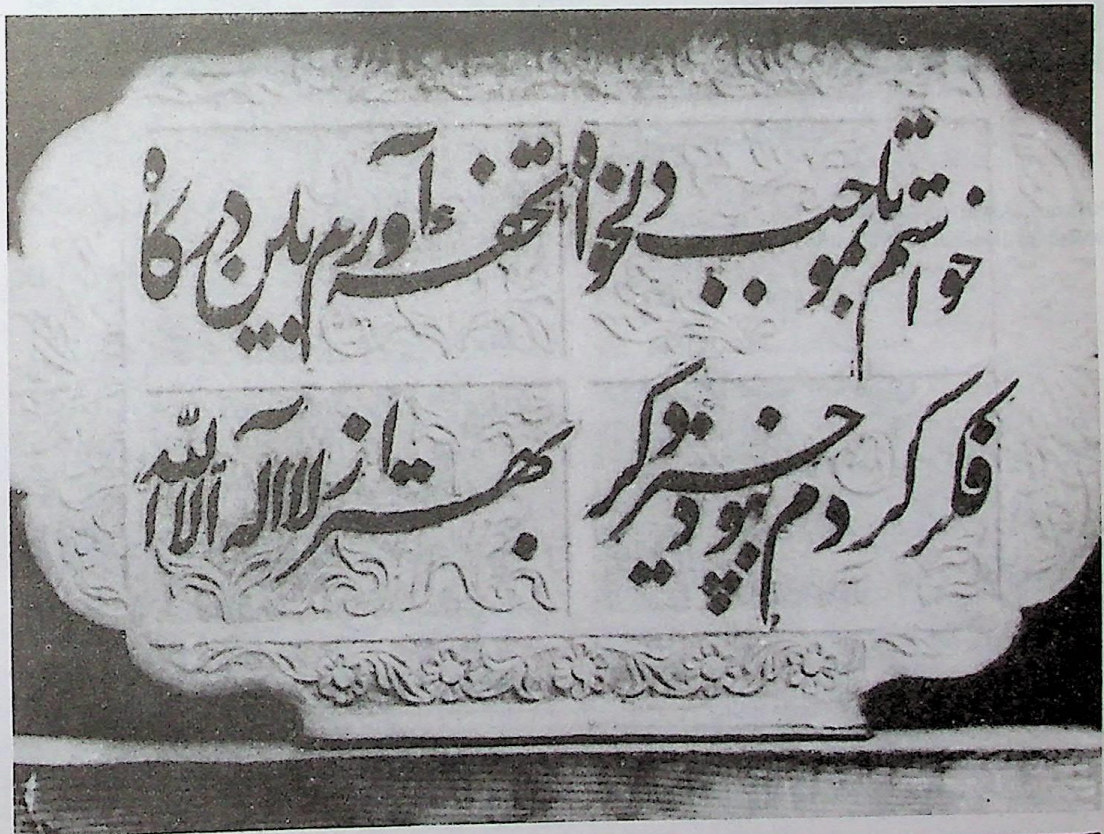 خواستم تا بموجب دلخواه تحفهٔ آورم باین درکاه
فکر کردم نبود چیز دکر بهتر از لا اله الا الله